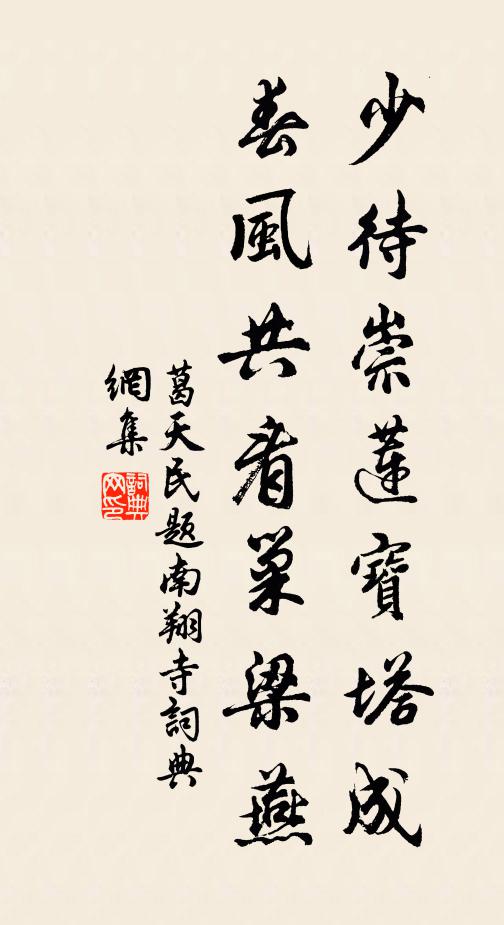 少待崇蓮寶塔成
春風共看巢梁燕
葛天民題南翔寺詞典
網集
詞典
网印